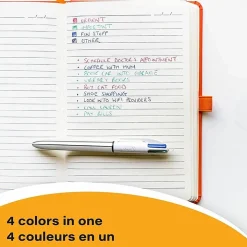 URGENT
IMPORTANT
FUN STUFF
OTHER
SCHEDULE DOCTOR'S APPOINTMENT
COFFEE WITH MUM
BOOK CAR INTO GARAGE
LIBRARY BOOKS
BUY CAT FOOD
SHOE SHOPPING
LOOK INTO WIFI PROVIDERS
CALL LAUREN
PAY BILLS
4 colors in one
4 couleurs en un